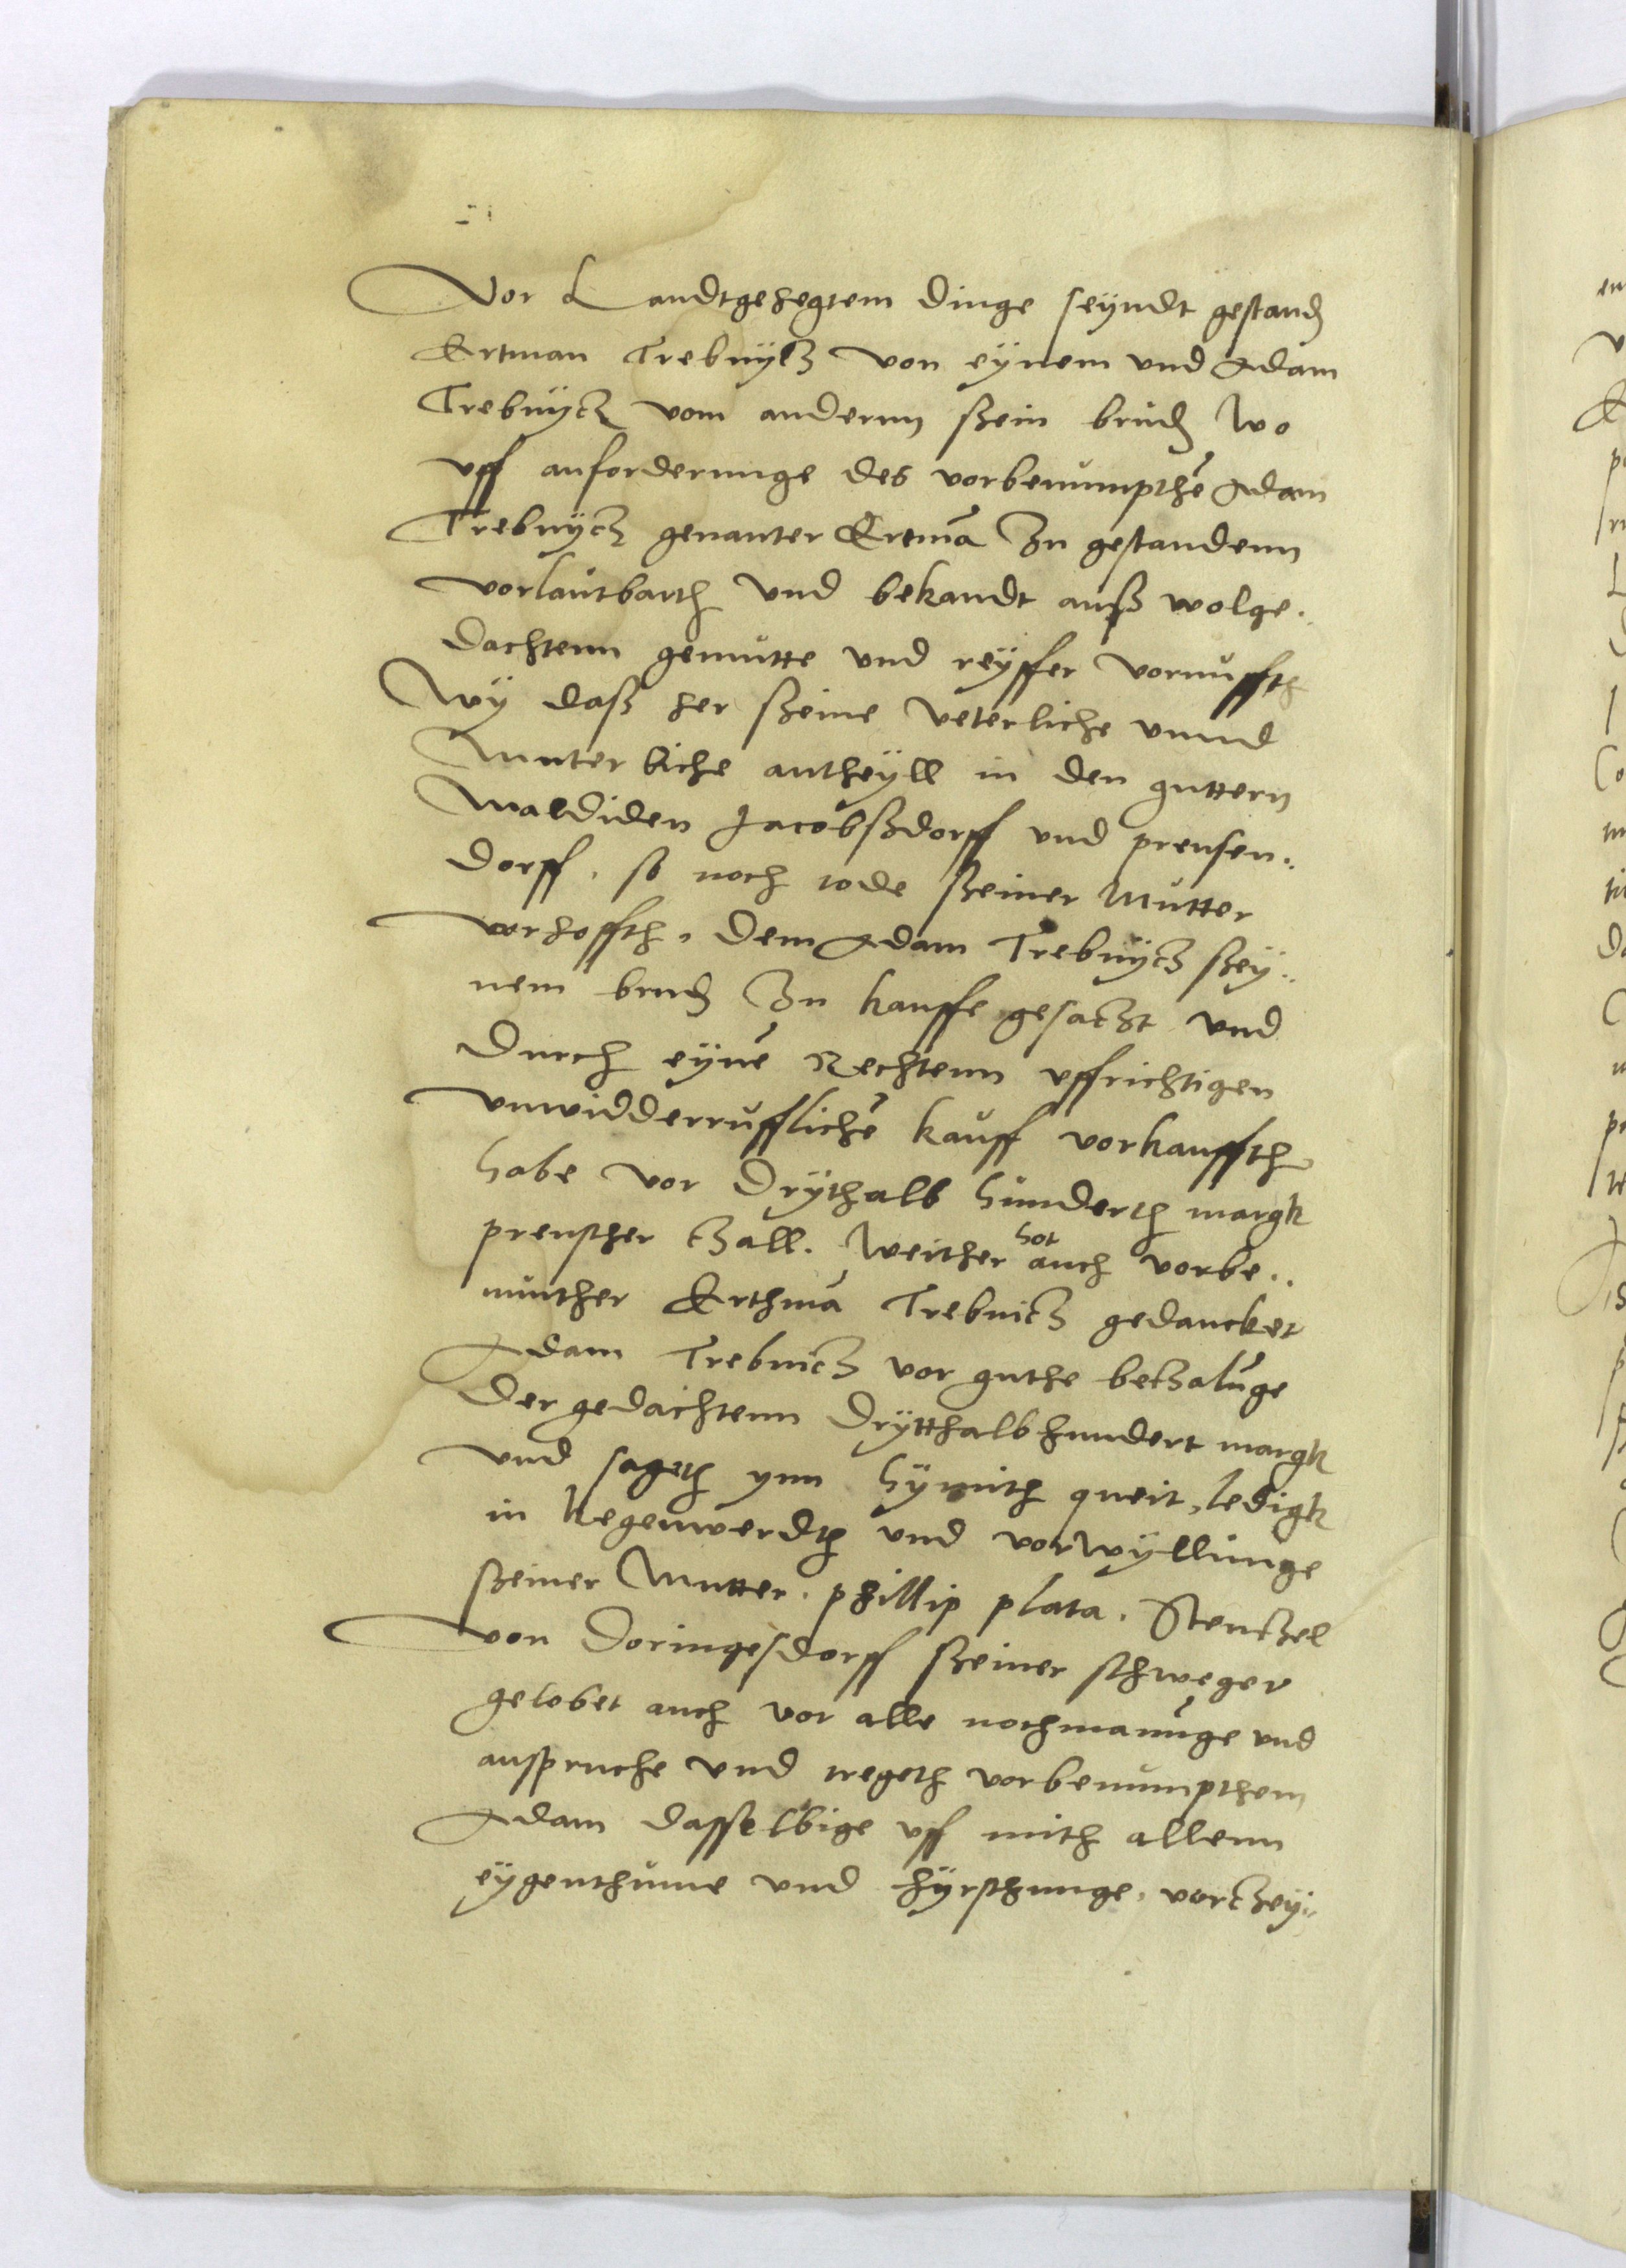 Vor Landtgehegtem dinge seyndt gestanden
Ertman Trebnytz von eynem vnd Adam
Trebnytz vom andernn ßein bruder Wo
vff anforderunge des vorbenumpthē Adam
Trebnytz genanter Ertmā zu gestandenn
vorlautbarth vnd bekandt auß wolge¬
dachtenn gemutte vnd reyffer vornuffth
Wy daß her ßeine veterliche vnnd
Mutterliche antheyll in den guttern
Maldiden Jacobßdorff vnd prensen¬
dorff, so noch tode ßeiner Mutter
vorhoffth, dem Adam Trebnytz ßey¬
nem bruder zu kauffe gesatzt vnd
durch eynē Rechtenn vffrichtigen
vnwidderrufflichē kauff vorkauffth
habe vor drythalb hunderth margk
preuscher tzall. Weither hot auch vorbe¬
nunther Erthmā Trebnitz gedancket
Adam Trebnitz vor guthe betzalūge
der gedachtenn drytthalbhundert margk
vnd sageth ynn hyrmith queit, ledigk
in kegenwerdth vnd vorwyllunge
ßeiner Mutter. phillip plata. Stentzel
von Doringesdorff ßeiner schweger
gelobet auch vor alle nochmanūge vnd
anspruche vnd tregeth vorbenumpthem
Adam dasselbige vff mith allenn
eygenthume vnd hyrschunge, vortzey¬